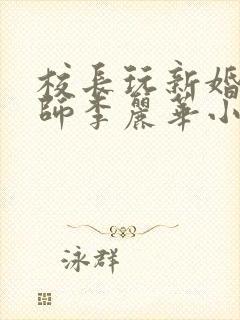 校長玩新婚
師李麗華小
泳群